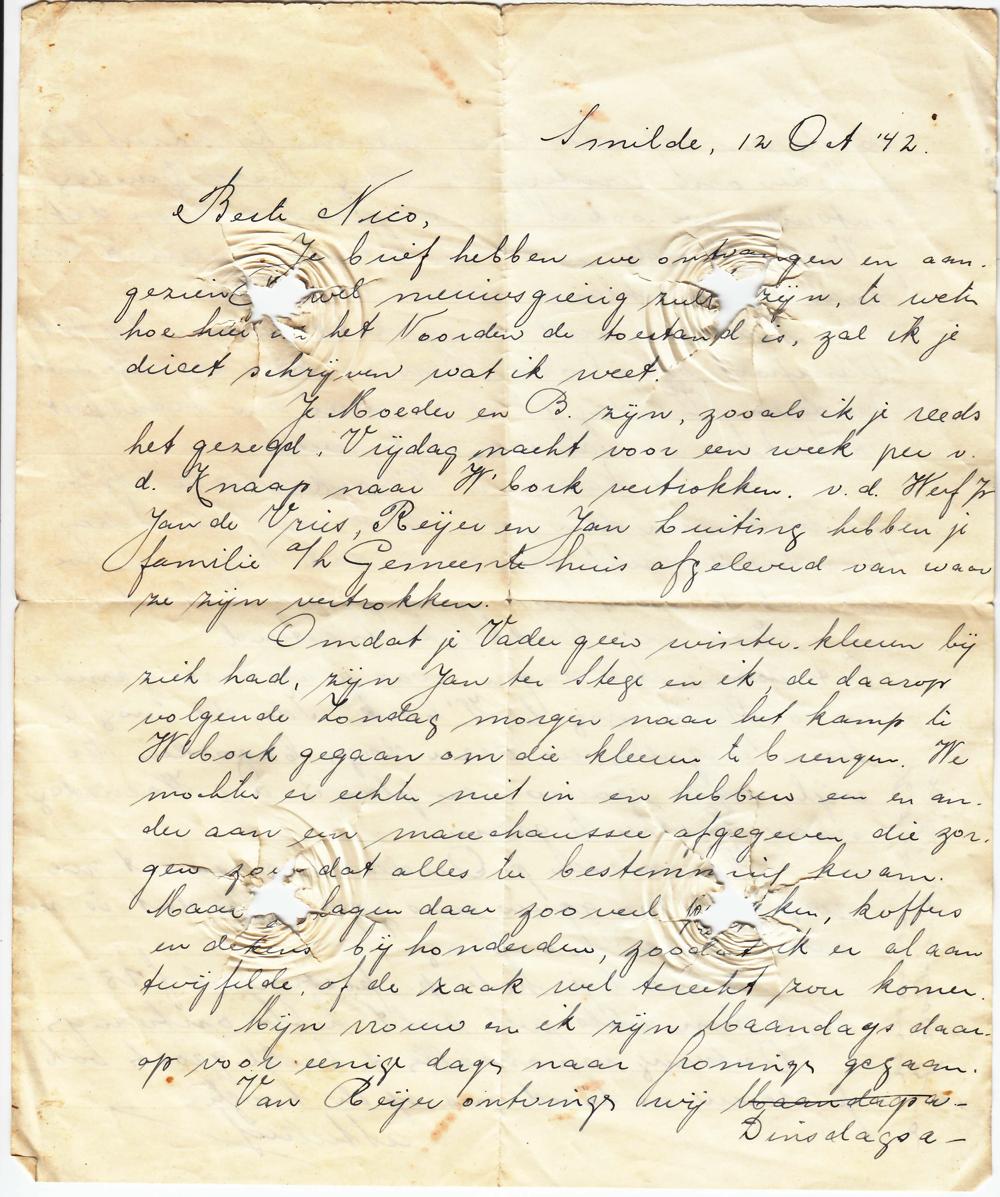 Smilde, 12 Oct '42.
Beste Nico,
Je brief hebben we ontvangen en aan-
gezien wel nieuwsgierig zult zijn, te weten
hoe hier in het Noorden de toestand is, zal ik je
direct schrijven wat ik weet.
Je Moeder en B. zijn, zooals ik je reeds
het gezegd, Vrijdag nacht voor een week per v.
d. Knaap naar W'bork vertrokken. v.d. Werf,
Jan de Vries, Reijer en Jan Luiting hebben je
familie a/h Gemeente huis afgeleverd van waar
ze zijn vertrokken.
Omdat je Vader geen winter-kleeren bij
zich had, zijn Jan ter Stege en ik, de daarop
volgende Zondag morgen naar het kamp te
W'bork gegaan om die kleeren te brengen. We
mochten er echter niet in en hebben een en an-
der aan een marechaussee afgegeven, die zor-
gen zou dat alles ter bestemming kwam.
Maar lagen daar zooveel koffers
en dekens bij honderden, zoodat ik er al aan
twijfelde, of de zaak wel terecht zou komen.
Mijn vrouw en ik zijn Maandags daar-
op voor eenige dagen naar gegaan.
Van Reijer ontvingen wij Maandagsa-
Dinsdagsa-